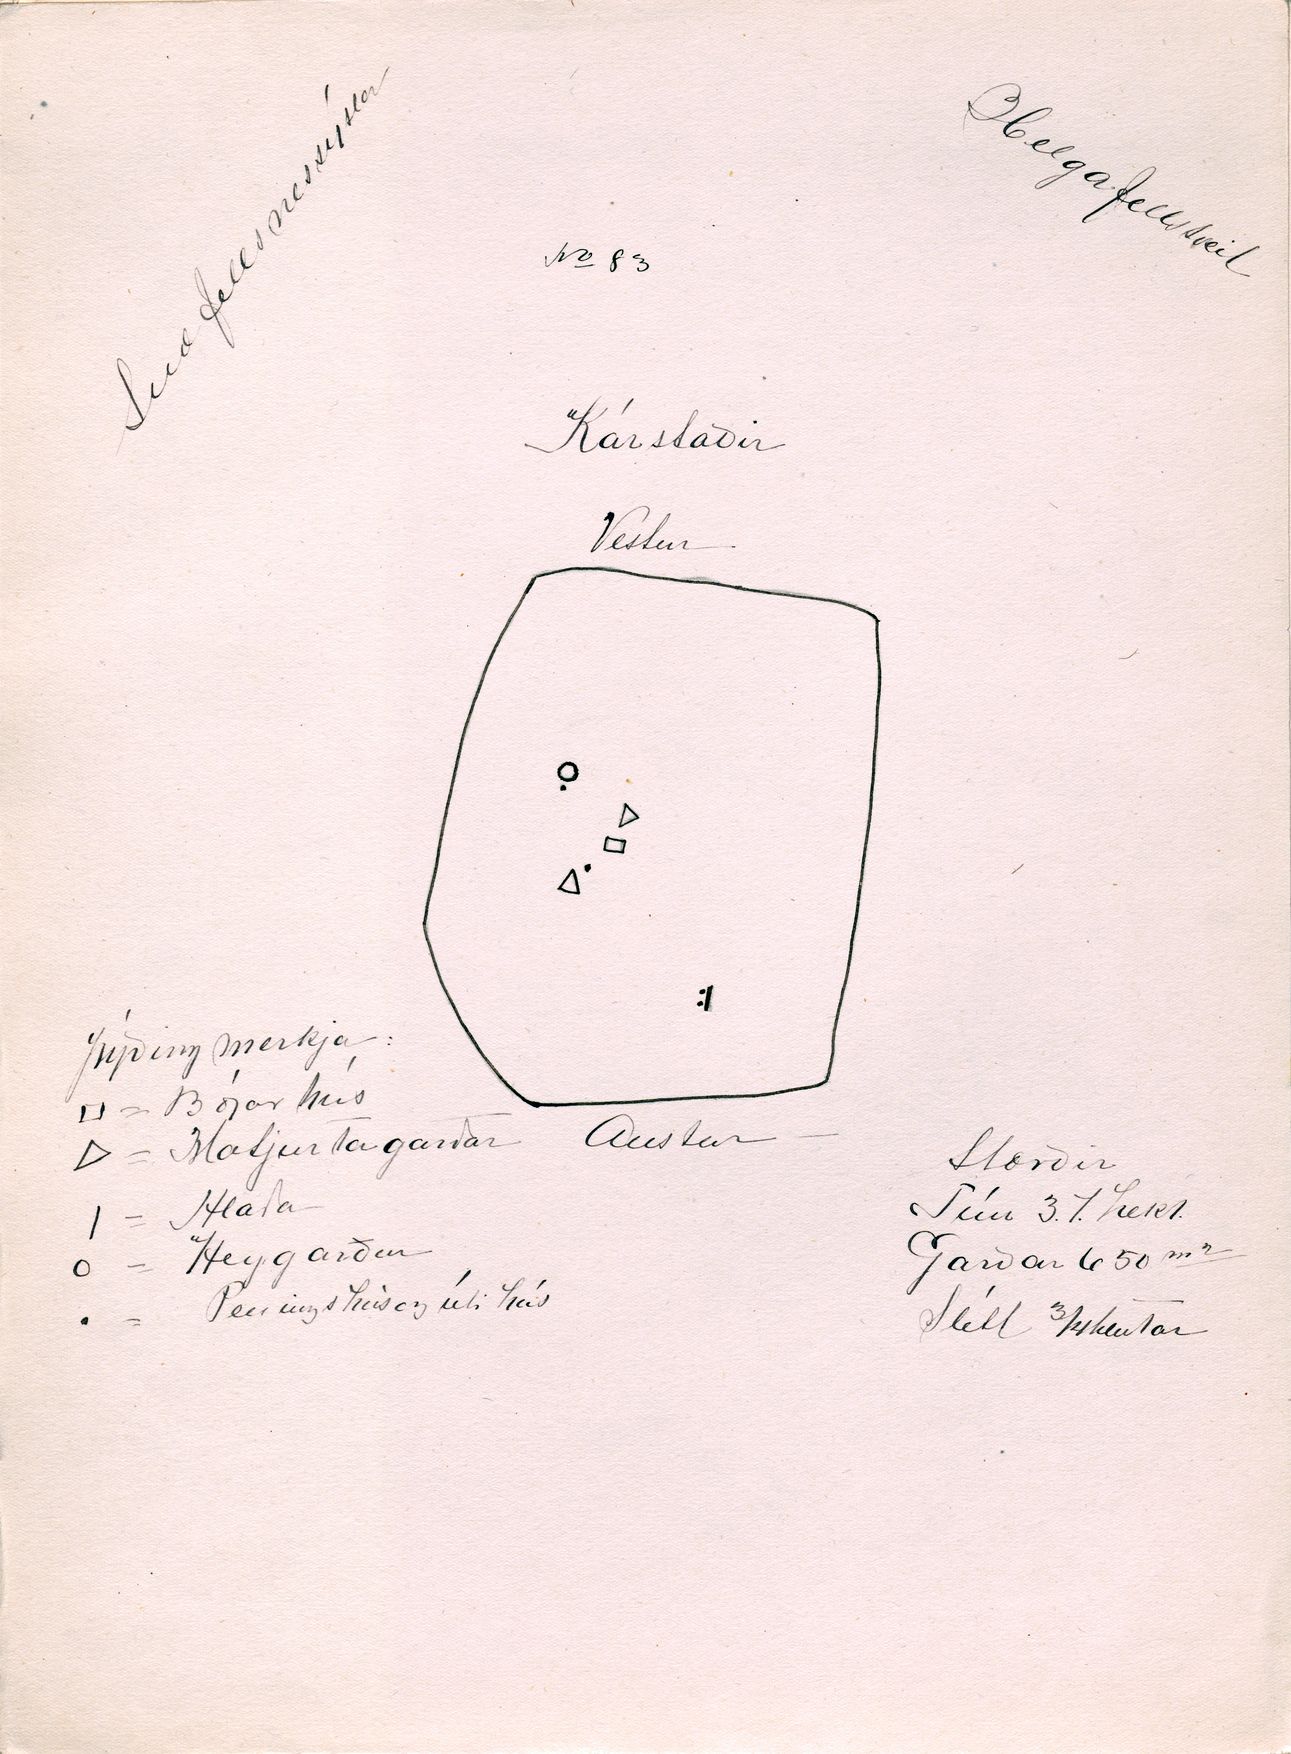 Snæfellsnessýsla
Helgafellssveit
No 83
Kárstaðir
Vestur
Þýðing merkja:
□ = Bæjarhús
▷ = Matjurtagarðar
| = Hlaða
o = Heygarður
. = Peningshús og útihús
Austur
Stærðir
Tún 3.1. hekt.
Garðar 650 m²
Slétt 3/4 hlutar